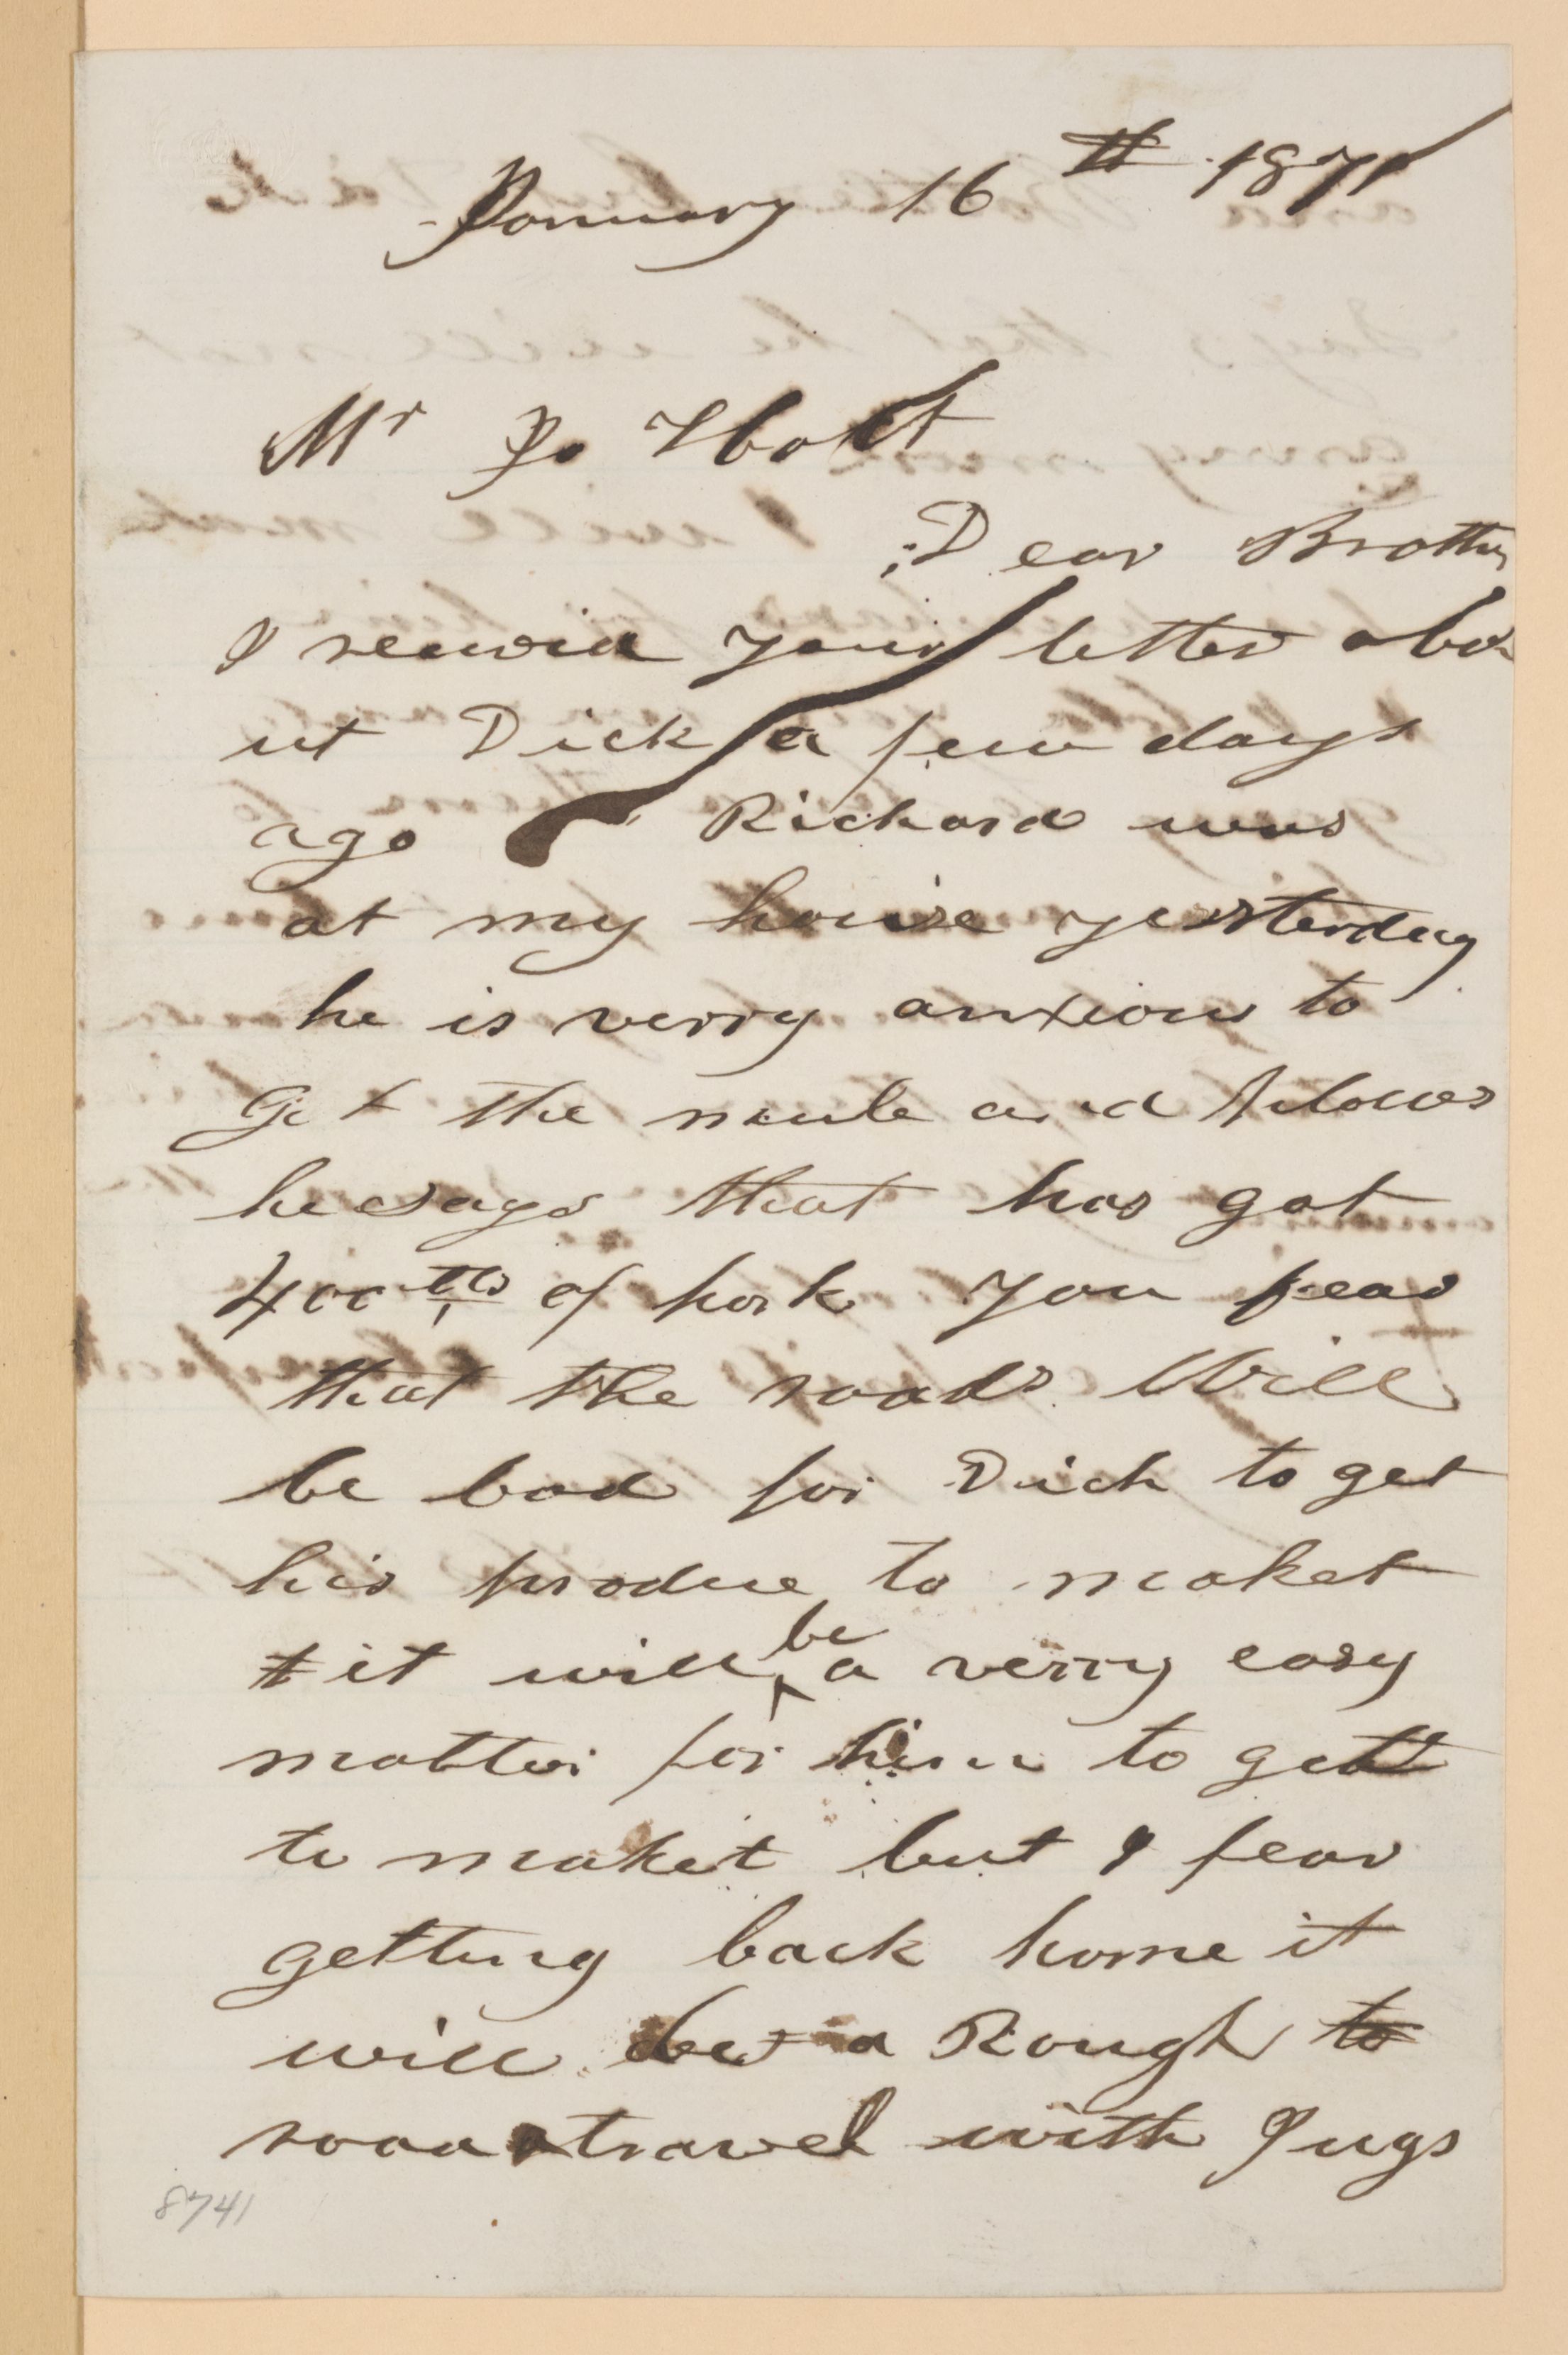 January 16th 1871
Mr Jo Holt
Dear Brother
I receivia your letter abo
ut Dick a few days
ago Richard was
at my house yesterday
he is verry anxious to
Get the mule and Plows
he says that has got
400 lbs of pork you fear
that the roads Will
be bad for Dick to get
his produce to maket
it will be a verry easy
matter for him to gett
to maket but I fear
getting back home it
will be a Rough to
road travel with Jugs
8741